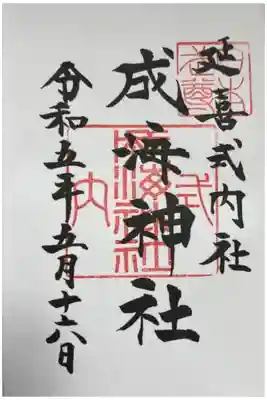 延喜式内社
成海神社
令和五年五月十六日
式内
成海神社